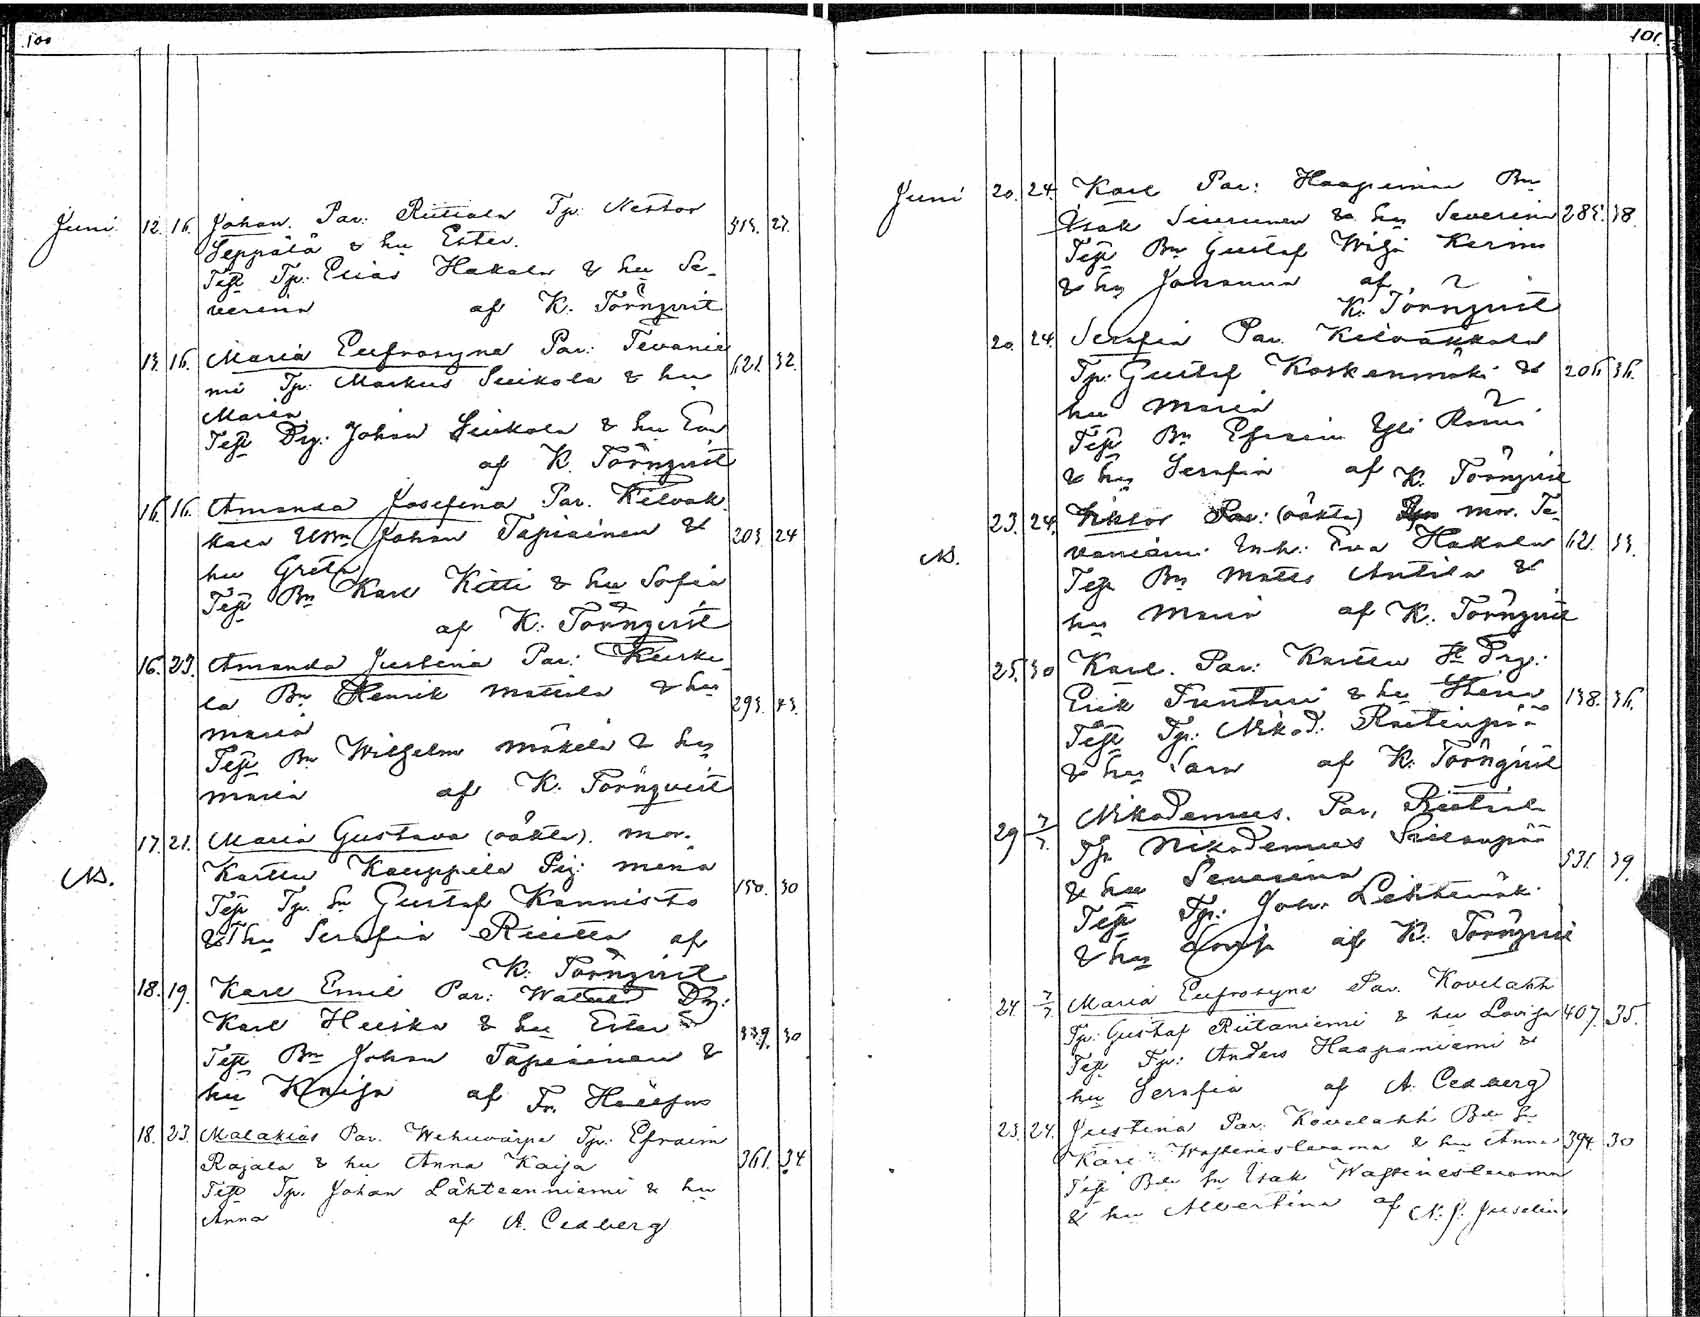 100
Juni 12. 16. Johan. Par: Riitiala Tp: Nestor
Seppälä & hu Ester. 515. 27.
Test Tp: Elias Hakala & hu Se-
verina af K. Törnqvist
13. 16. Maria Eufrosyna Par: Tevanie
mi Tp: Markus Luikola & hu 621. 32.
Maria
Test Drg: Johan Luikola & hu Eva
af K. Törnqvist
16. 16. Amanda Josefina Par. Kilvak
kala Johan Tapiainen & 203. 24
hu Greta
Test Bn Karl Kitti & hu Sofia
af K: Törnqvist
16. 23. Amanda Justina Par: Keike
la Bn Henrik Mattila & hu 293. 43.
Maria
Test Bn Wilhelm Mäkelä & hu
Maria af K. Törnqvist
17. 21. Maria Gustava (oäkta). mor.
NB. Karttu Kauppila Pig: mena
Test Tp. Sn Gustaf Kannisto 150. 30
& hu Serafia Riitta af
K: Törnqvist
18. 19. Karl Emil Par: Drg:
Karl Heiska & hu Ester 339. 30
Test Bn Johan Tapiainen &
hu Kaisa af Fr.
18. 23. Malakias Par. Wehuvarpe Tp: Efraim
Rajala & hu Anna Kaisa 361. 34
Test Tp. Johan Lähteenniemi & hu
Anna af A. Cedberg
101.
Juni 20. 24. Karl Par: Haapimaa Bn
Isak & hu Severina 285. 38.
Test Bn Gustaf
& hu Johanna af
K. Törnqvist
20. 24. Serafia Par. Kilvakkala
Tp: Gustaf Koskenmäki & 206. 36.
hu Maria
Test Bn Efraim Yli Rami
& hu Serafia af K. Törnqvist
23. 24. Viktor Par: (oäkta) mor. Te-
NB. vaniemi. Inh: Eva Hakala 621. 33.
Test Bn Matts Antila &
hu Maria af K. Törnqvist
25. 30 Karl. Par: Karttu Drg:
Erik Tunturi & hu Stina 138. 36.
Test Tp: Nikod: Raitinpää
& hu Sara af K: Törnqvist
29 7/7. Nikodemus. Par, Riitiala
Tp Nikodemus
& hu Severina 531. 39.
Test Tp: Joh. Lehtimäk
& hu Lovisa af K: Törnqvist
24. 7/7 Maria Eufrosyna Par. Kovelahti
Tp: Gustaf Riitaniemi & hu Lovisa 407. 35.
Test Tp: Anders Haapaniemi &
hu Serafia af A. Cedberg
23. 24. Justina Par: Kovelahti
Karl & hu Anna 394. 30
Test Isak
& hu Albertina af N. J. Juselius